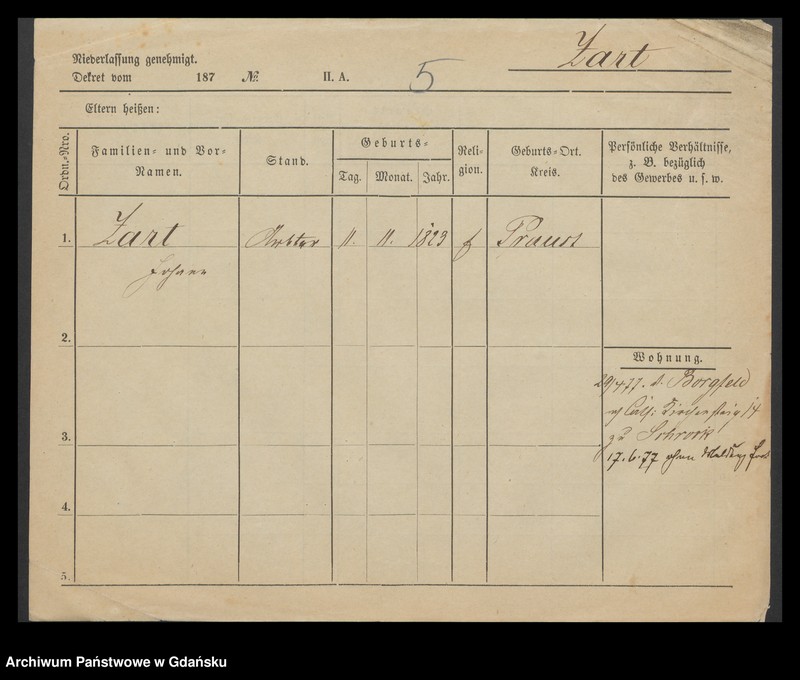 Zart
Niederlassung genehmigt.
Dekret vom 187 № II. A. 5
Eltern heißen:
Ordn.-Nro.
Familien- und Vor-Namen.
Stand.
Geburts-
Tag. Monat. Jahr.
Reli-gion.
Geburts-Ort.
Kreis.
Persönliche Verhältnisse,
z. B. bezüglich
des Gewerbes u. s. w.
1. Zart Arbter 11. 11. 1823 Praust
2.
Wohnung.
29/4 77. v. Borgfeld
n/ Cath: Kirchensteig 14
zu Schrock
3.
17.6.77 ohne Meldung fort
4.
5.
Archiwum Państwowe w Gdańsku